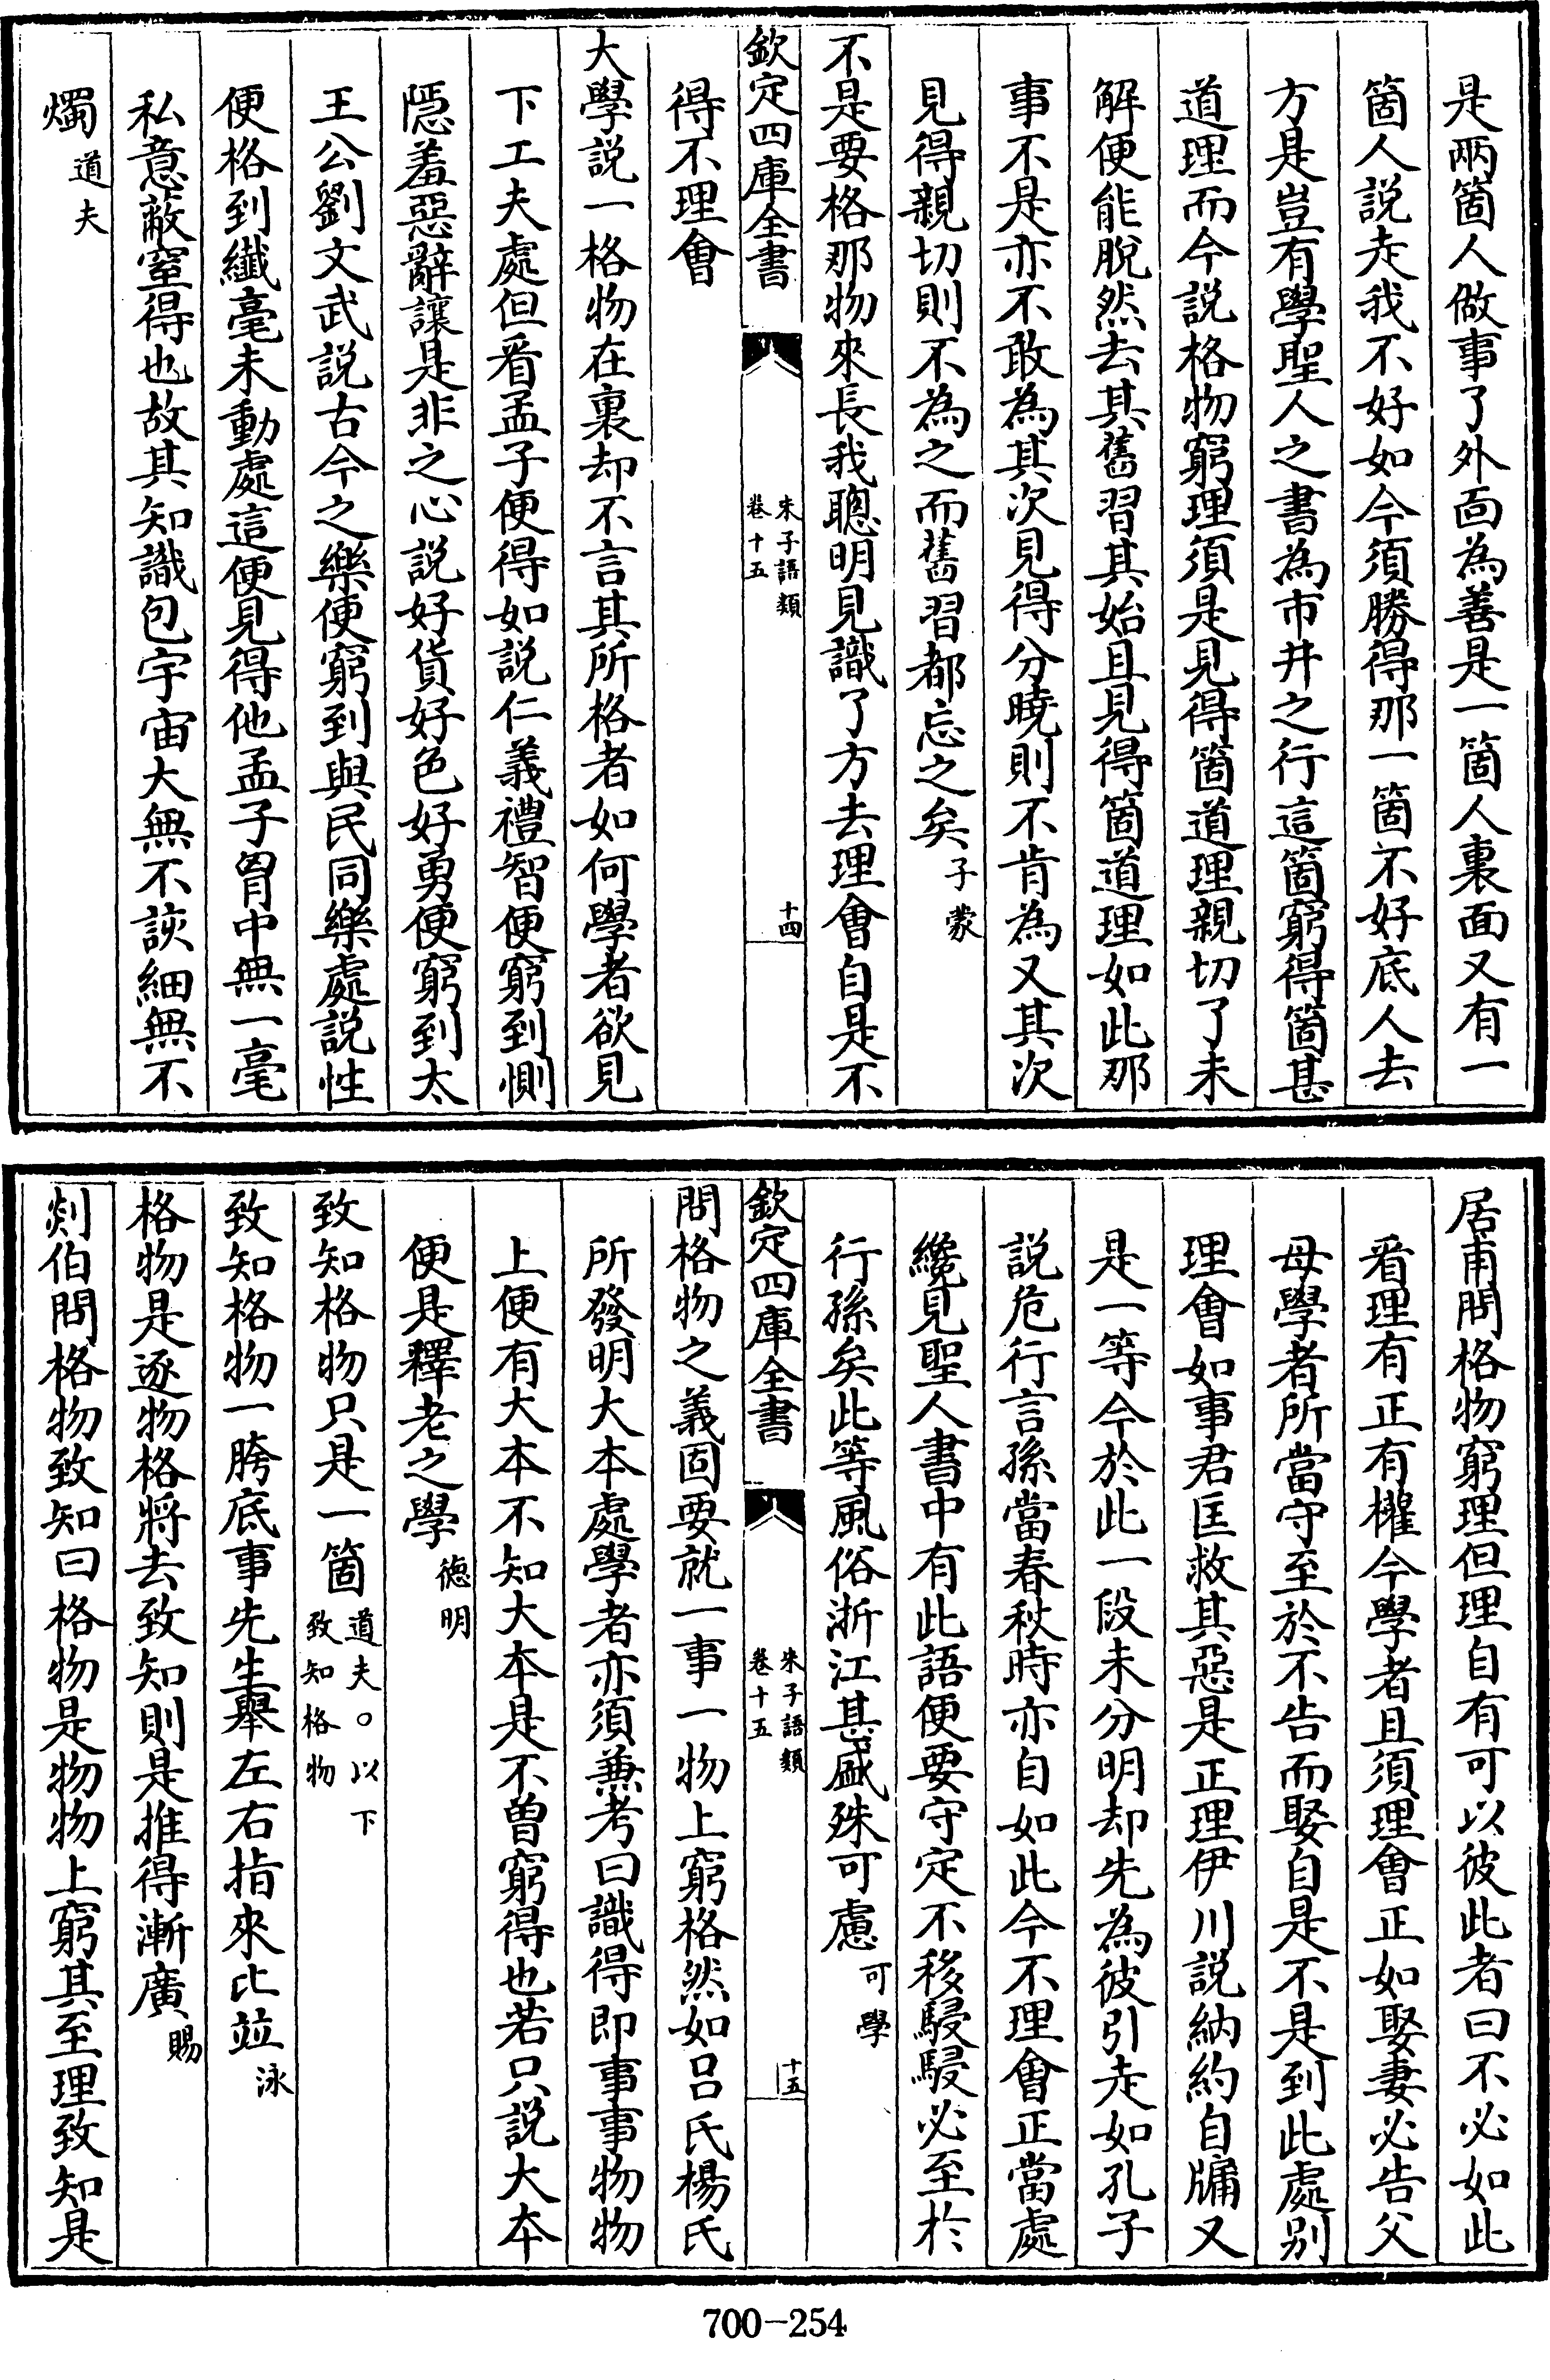 是兩箇人做事了外面為善是一箇人裏面又有一
箇人説走我不好如今須勝得那一箇不好底人去
方是豈有學聖人之書為市井之行這箇窮得箇甚
道理而今説格物窮理須是見得箇道理親切了未
解便能脱然去其舊習其始且見得箇道理如此那
事不是亦不敢為其次見得分曉則不肯為又其次
見得親切則不為之而舊習都忘之矣子蒙
不是要格那物來長我聰明見識了方去理會自是不
欽定四庫全書
朱子語類
卷十五
十四
得不理會
大學説一格物在裏却不言其所格者如何學者欲見
下工夫處但看孟子便得如説仁義禮智便窮到惻
隱羞惡辭讓是非之心説好貨好色好勇便窮到太
王公劉文武説古今之樂便窮到與民同樂處説性
便格到纖毫未動處這便見得他孟子胷中無一毫
私意蔽窒得也故其知識包宇宙大無不該細無不
燭道夫
居甫問格物窮理但理自有可以彼此者曰不必如此
看理有正有權今學者且須理會正如娶妻必告父
母學者所當守至於不告而娶自是不是到此處别
理會如事君匡救其惡是正理伊川説納約自牖又
是一等今於此一段未分明却先為彼引走如孔子
説危行言孫當春秋時亦自如此今不理會正當處
纔見聖人書中有此語便要守定不移駸駸必至於
行孫矣此等風俗浙江甚盛殊可慮可學
欽定四庫全書
朱子語類
卷十五
十五
問格物之義固要就一事一物上窮格然如呂氏楊氏
所發明大本處學者亦須兼考曰識得即事事物物
上便有大本不知大本是不曾窮得也若只説大本
便是釋老之學德明
致知格物只是一箇道夫○以下
致知格物
致知格物一胯底事先生舉左右指來比竝泳
格物是逐物格將去致知則是推得漸廣賜
剡伯問格物致知曰格物是物物上窮其至理致知是
700-254